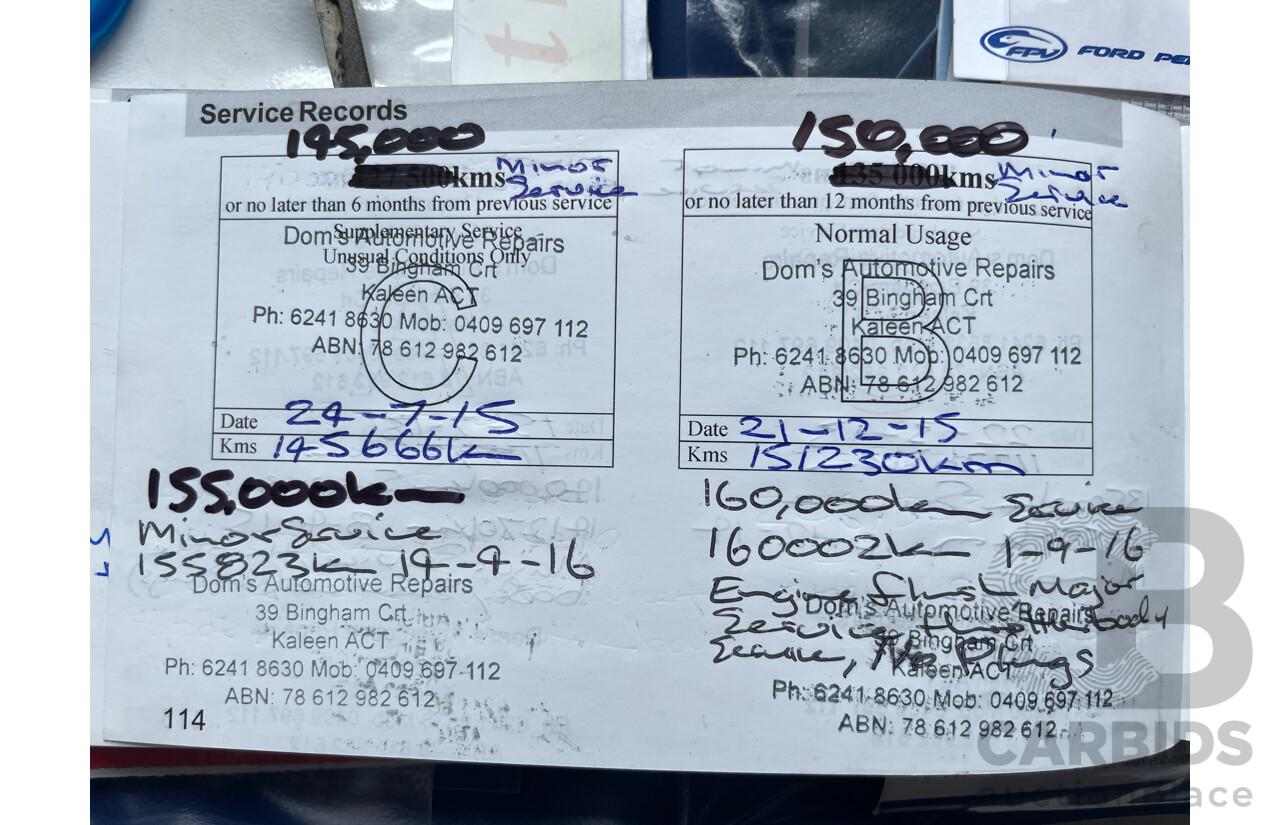 FPV FORD PE
Service Records
145,000
kms Minor Service
or no later than 6 months from previous service
Supplementary Service
Unusual Conditions Only
C
Dom's Automotive Repairs
39 Bingham Crt
Kaleen ACT
Ph: 6241 8630 Mob: 0409 697 112
ABN: 78 612 982 612
Date 24-7-15
Kms 145666km
150,000
135 000kms Minor Service
or no later than 12 months from previous service
Normal Usage
B
Dom's Automotive Repairs
39 Bingham Crt
Kaleen ACT
Ph: 6241 8630 Mob: 0409 697 112
ABN: 78 612 982 612
Date 21-12-15
Kms 151230km
155,000km
Minor Service
155823km 19-4-16
Dom's Automotive Repairs
39 Bingham Crt
Kaleen ACT
Ph: 6241 8630 Mob: 0409 697 112
ABN: 78 612 982 612
160,000km Service
160002km 1-9-16
Engine Flush Major
Service, Throttlebody
Service, Plugs
Dom's Automotive Repairs
39 Bingham Crt
Kaleen ACT
Ph: 6241 8630 Mob: 0409 697 112
ABN: 78 612 982 612
114
CARBIDS